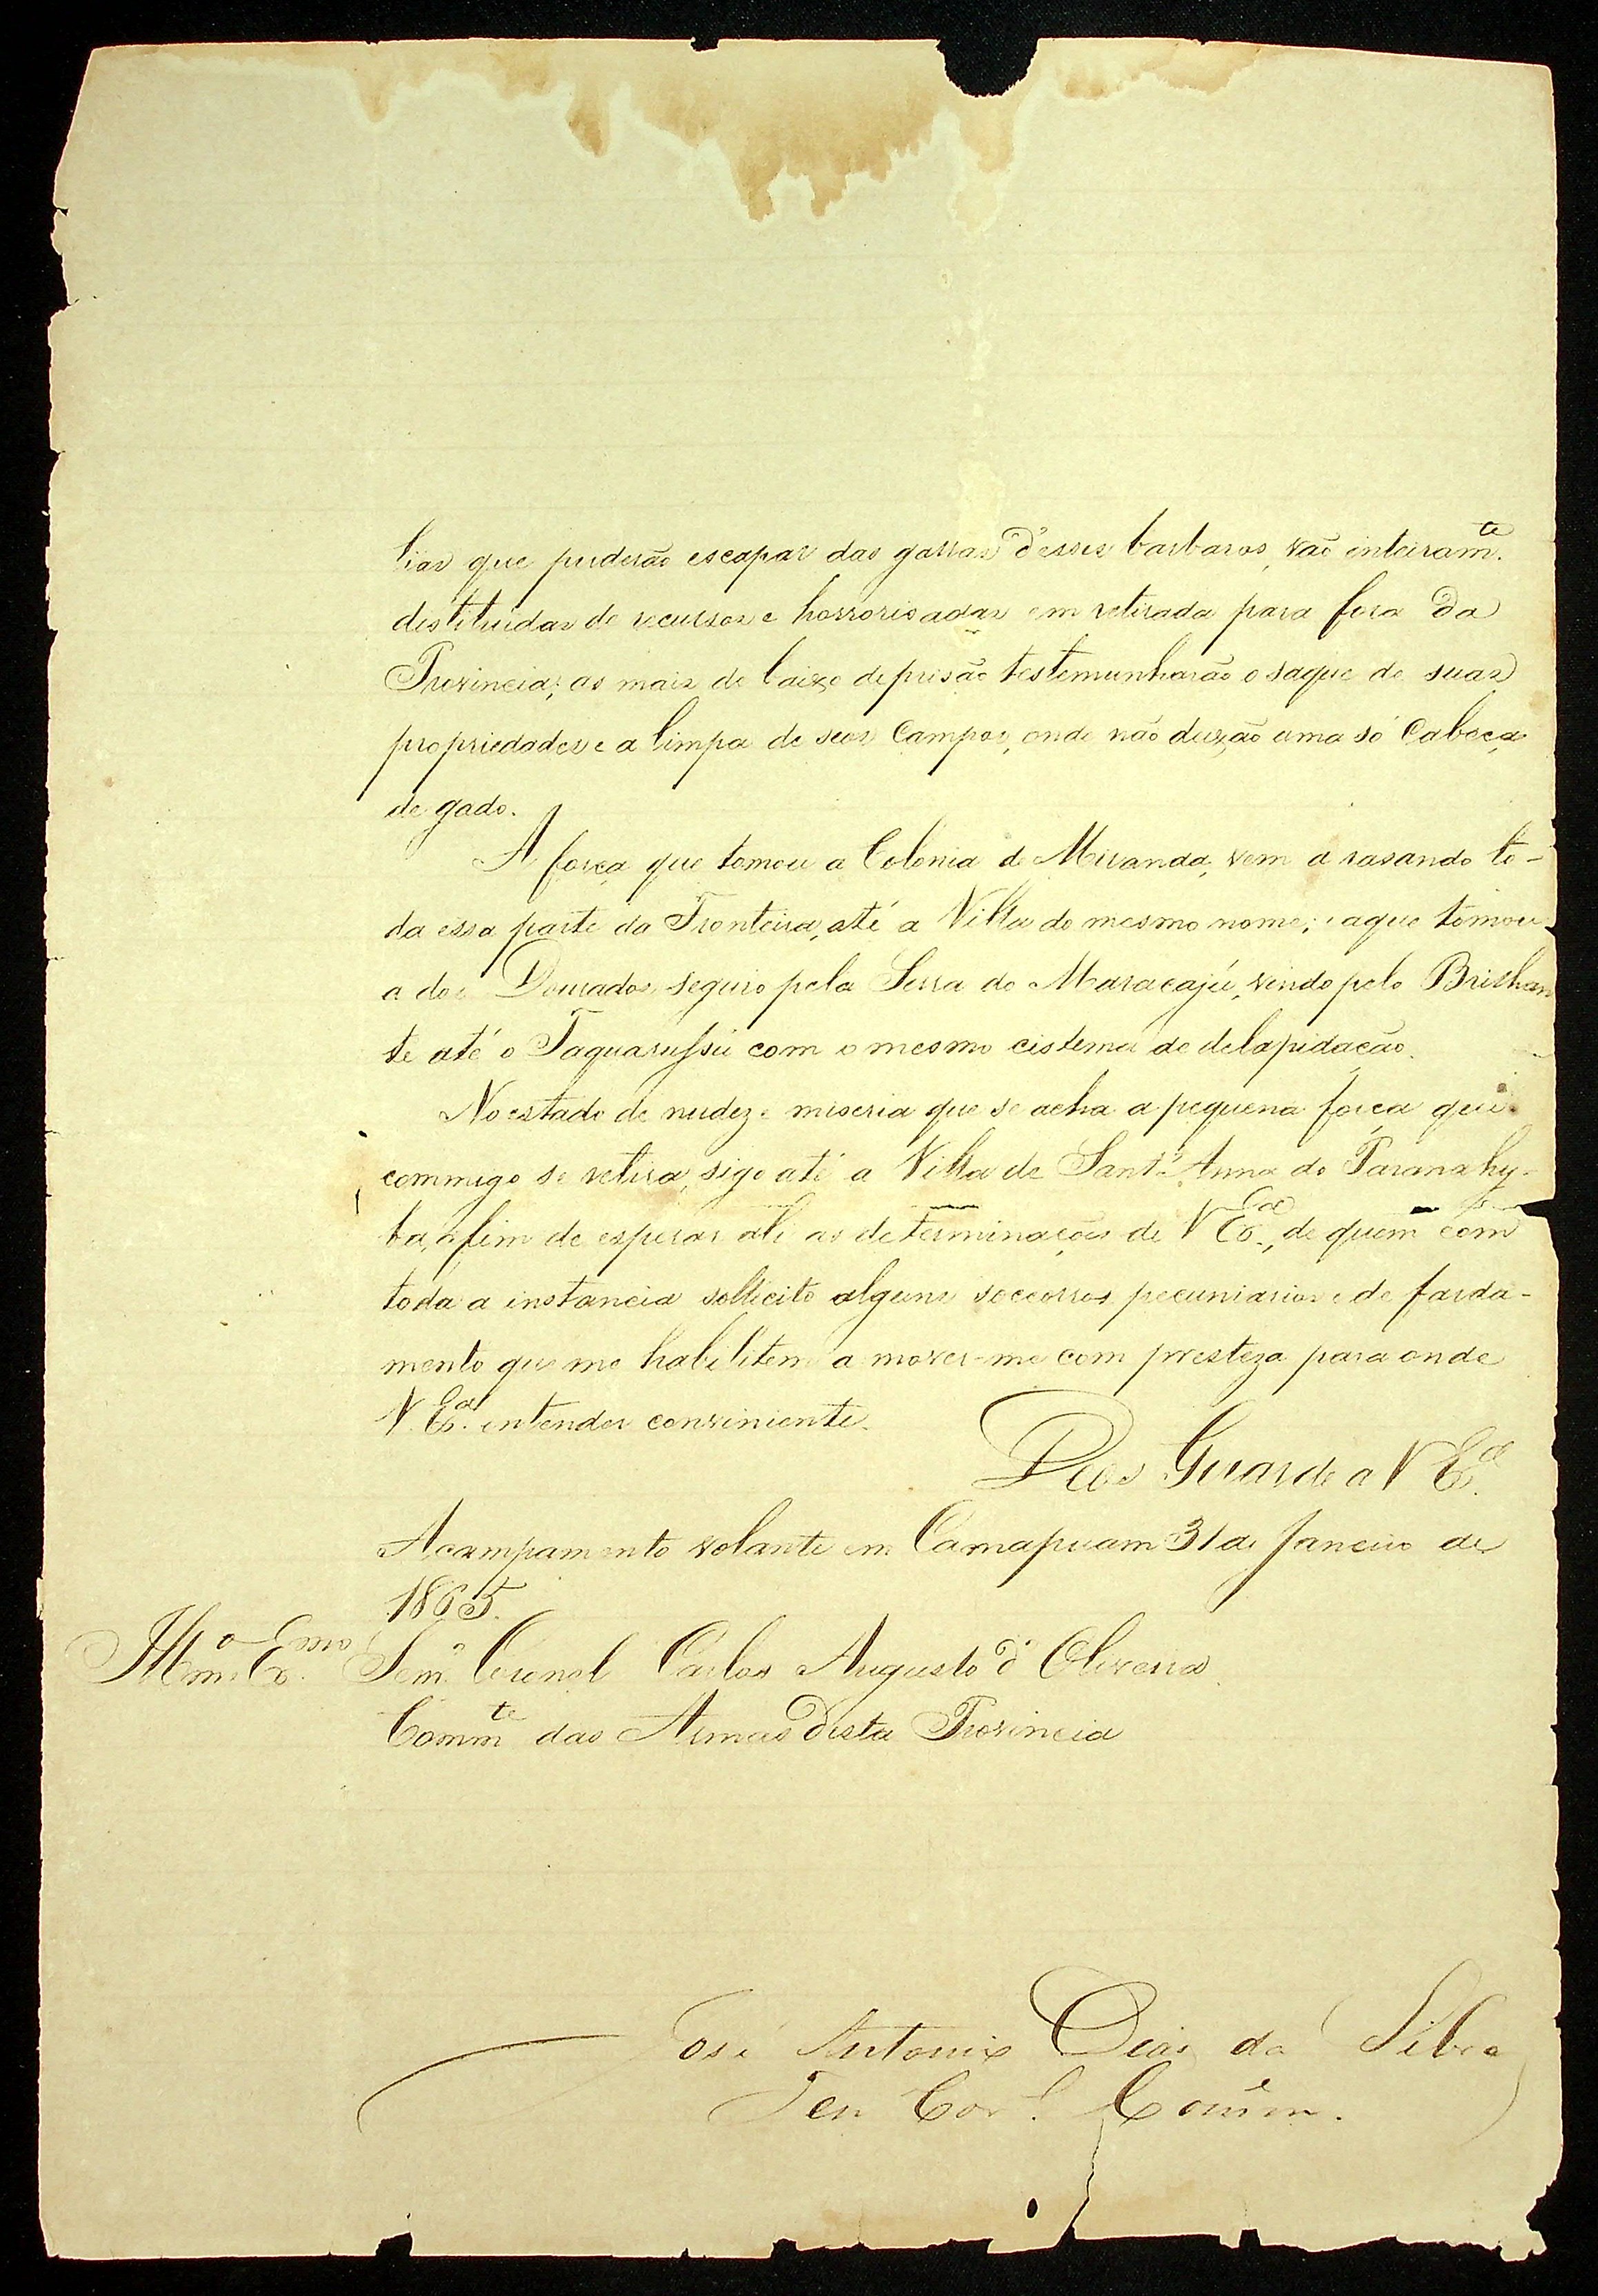 lias que puderão escapar das garras d'esses barbaros, vão inteiram.te
destituidas de recursos e horrorisadas em retirada para fora da
Provincia; as mais de baixo de prisão testemunharão o saque de suas
propriedades e a limpa de seos Campos, onde não deixão uma só Cabeça
de gado.
A força que tomou a Colonia de Miranda, vem a rasando to-
da essa parte da Fronteira, até a Villa do mesmo nome; e aque tomou
a dos Dourados seguio pela Serra do Maracajú, vindo pelo Brilhan
te até o Taquarussú com o mesmo cistema de delapidação.
No estado de nudez e miseria que se acha a pequena força que
commigo se retira, sigo até a Villa de Sant'Anna do Paranahy-
ba, afim de esperar ali as determinações de V Ex.cia, de quem com
toda a instancia sollicito alguns soccorros pecuniarios e de farda-
mento que me habilitem a mover-me com presteza para onde
V. Ex.a entender conviniente.
Deos Guarde a V Ex.a
Acampamento volante em Camapuam 31 de Janeiro de
1865.
Illm.o Ex.mo Senr. Coronel Carlos Augusto d'Oliveira
Comm.te das Armas desta Provincia
José Antonio Dias da Silva
Ten Cor.l Comm.